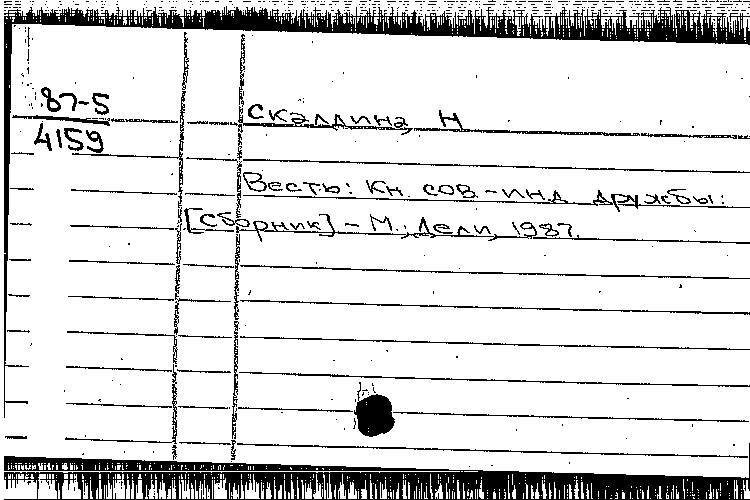 87-5
4159
Скалдина, Н
Весть: Кн. сов-инд. дружбы:
[Сборник] - М.; Дели, 1987.